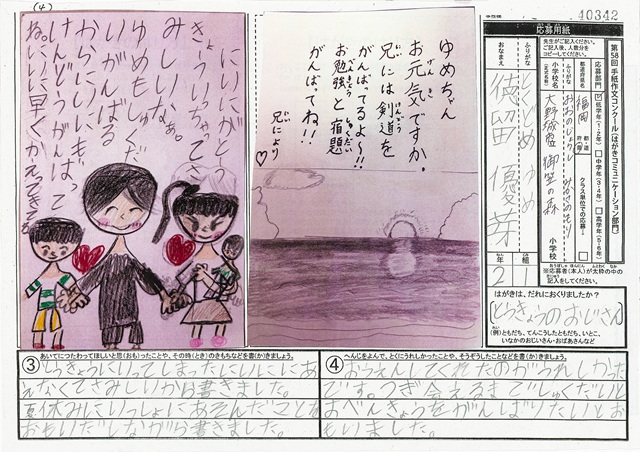 (4)
40342
応募用紙
第58回 手紙作文コンクール(はがきコミュニケーション部門)
先生がご記入ください。
ご記入後、人数分を
コピーしてください。
応募部門
低学年(1・2年)
中学年(3・4年)
高学年(5・6年)
都道府県名
福岡
クラス単位での応募
ふりがな
小学校名
(正式名称)
大野城市 御笠の森
小学校
ふりがな
とくどめ ゆめ
おなまえ
徳留 優芽
ねん
年 2
くみ
組 1
※応募者(本人)が太枠の中の
記入をしてください。
はがきは、だれにおくりましたか?
とうきょうのおじさん
(例)ともだち、てんこうしたともだち、いとこ、
いなかのおじいさん・おばあさんなど
ゆめちゃん
お元気ですか。
兄には剣道を
がんばってるよ~!!
お勉強と宿題
がんばってね!!
兄により
みしいなぁ。
ゆめもじゅく
いがんばる
からにいにもがばって
けんどうがんば
ね。いに早くかえってきて
③あいてにつたわってほしいと思(おも)ったことや、その時(とき)のきもちなどを書(か)きましょう。
とうきょうにいってしまったにいににあ
えなくてさみしいから書きました。
夏休みにいっしょにあそんだことを
おもいだしながら書きました。
④へんじをよんで、とくにうれしかったことや、そうぞうしたことなどを書(か)きましょう。
おうえんしてくれたのがうれしかった
です。つぎ会えるまでしゅくだいと
おべんきょうをがんばりたいとお
もいました。